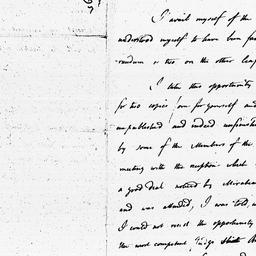 I avail myself of the
understood myself to have been
random or two on the other leaf
I take this opportunity
for two copies, one for yourself and
unpublished and indeed unfinished
by some of the Members of the
meeting with the reception which
a good deal noticed by Mirabeau
and was attended, I was told,
I could not resist the opportunity
the most competent judge